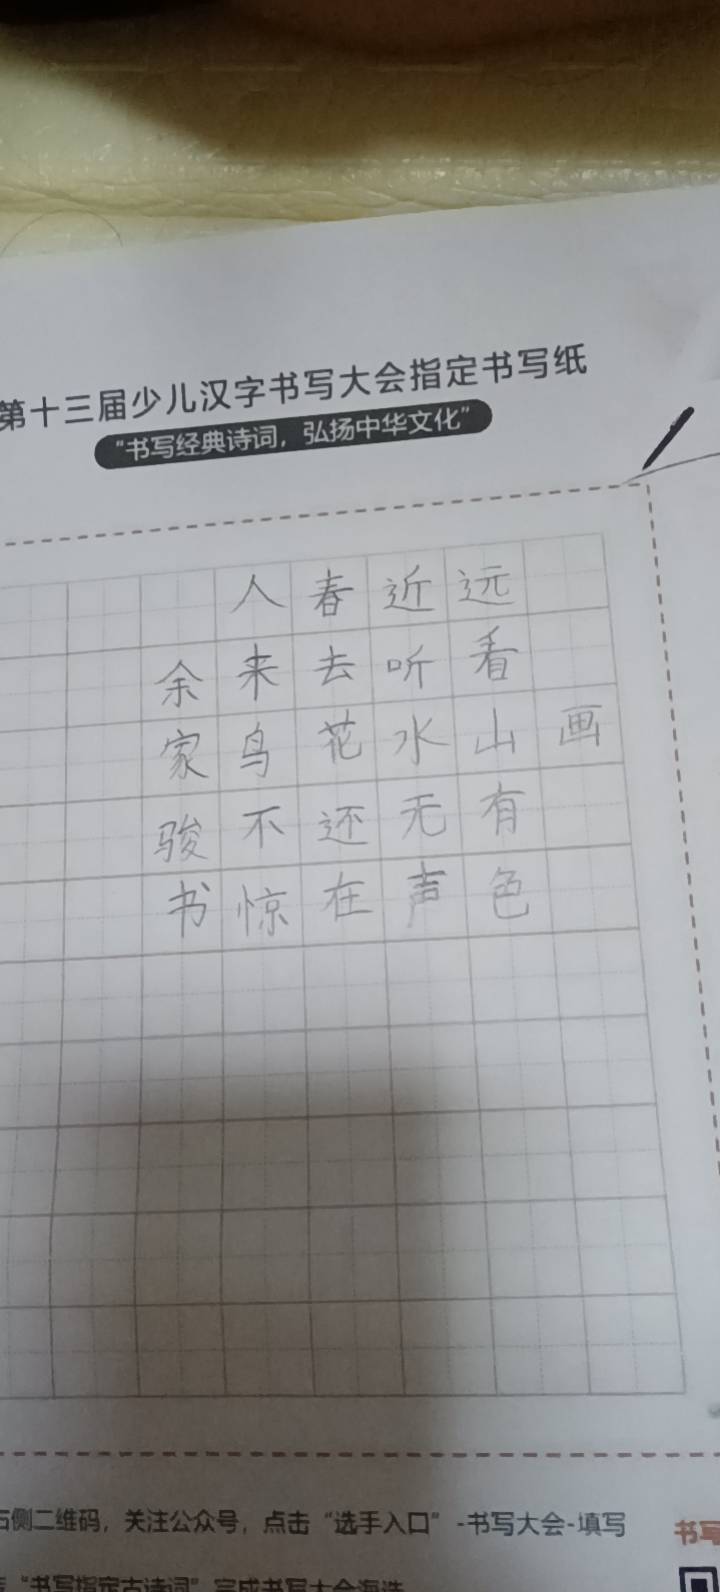 第十三届少儿汉字书写大会指定书写纸
“书写经典诗词，弘扬中华文化”
画
远看山有色
近听水无声
春去花还在
人来鸟不惊
余家骏书
右侧二维码，关注公众号，点击“选手入口”-书写大会-填写
“书写指定古诗词”完成书写大会海选
书写